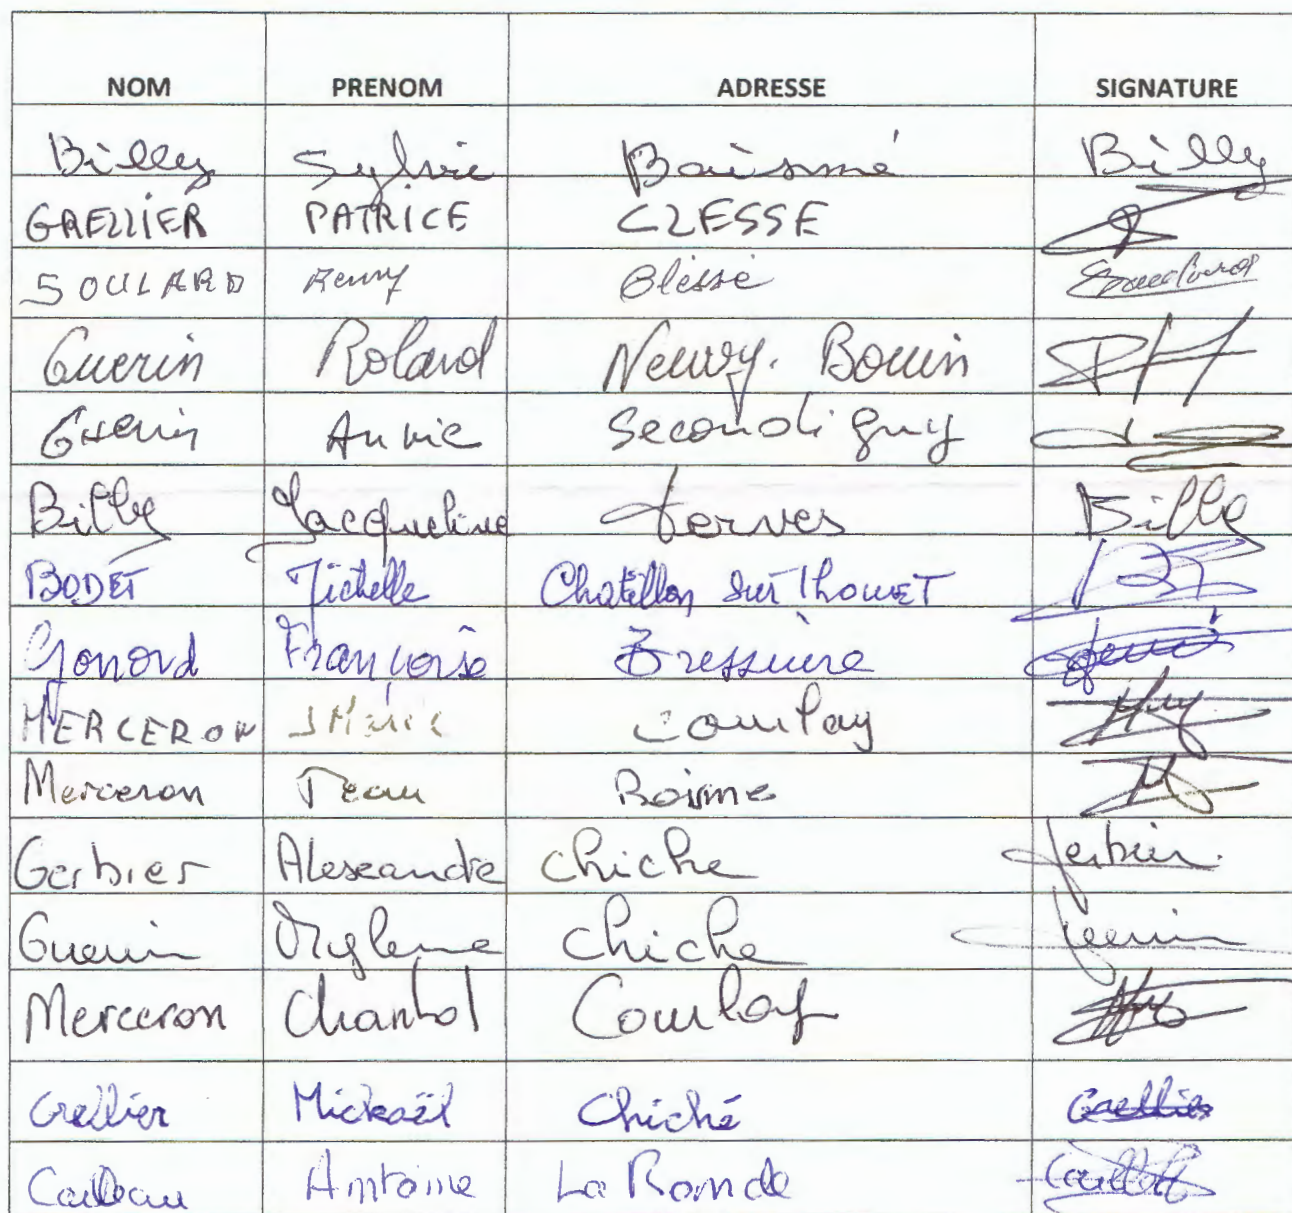 NOM PRENOM ADRESSE SIGNATURE
Billy Sylvie Boismé Billy
GRELLIER PATRICE CLESSE
SOULARD Remy Clessé
Guerin Roland Neuvy-Bouin
Guerin Annie Secondigny
Billy Jacqueline Terves Billy
BODET Michelle Chatillon sur ThoueT
Gonord Françoise Bressuire
MERCERON JMarie Courlay
Merceron Jean Boisme
Gerbier Alexandre Chiche Gerbier
Guerin Mylene Chiche Guerin
Merceron Chantal Courlay
Grellier Mickaël Chiché Grellier
Cailleau Antoine La Ronde